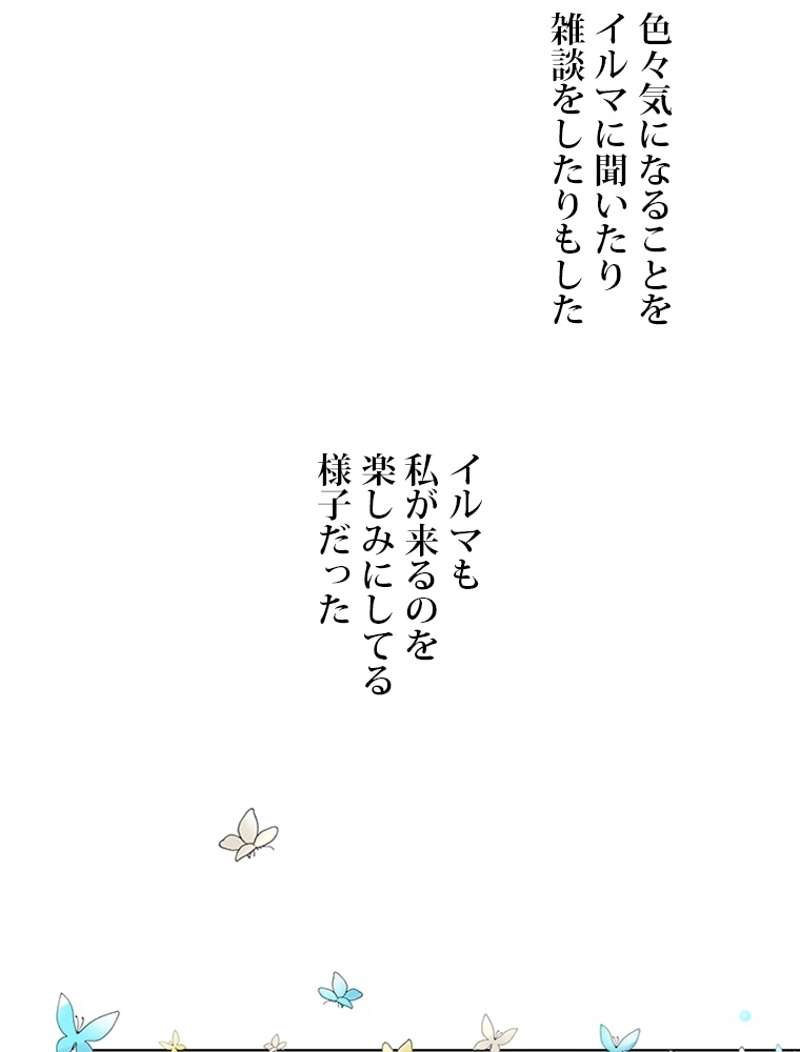 色々気になることを
イルマに聞いたり
雑談をしたりもした
イルマも
私が来るのを
楽しみにしてる
様子だった